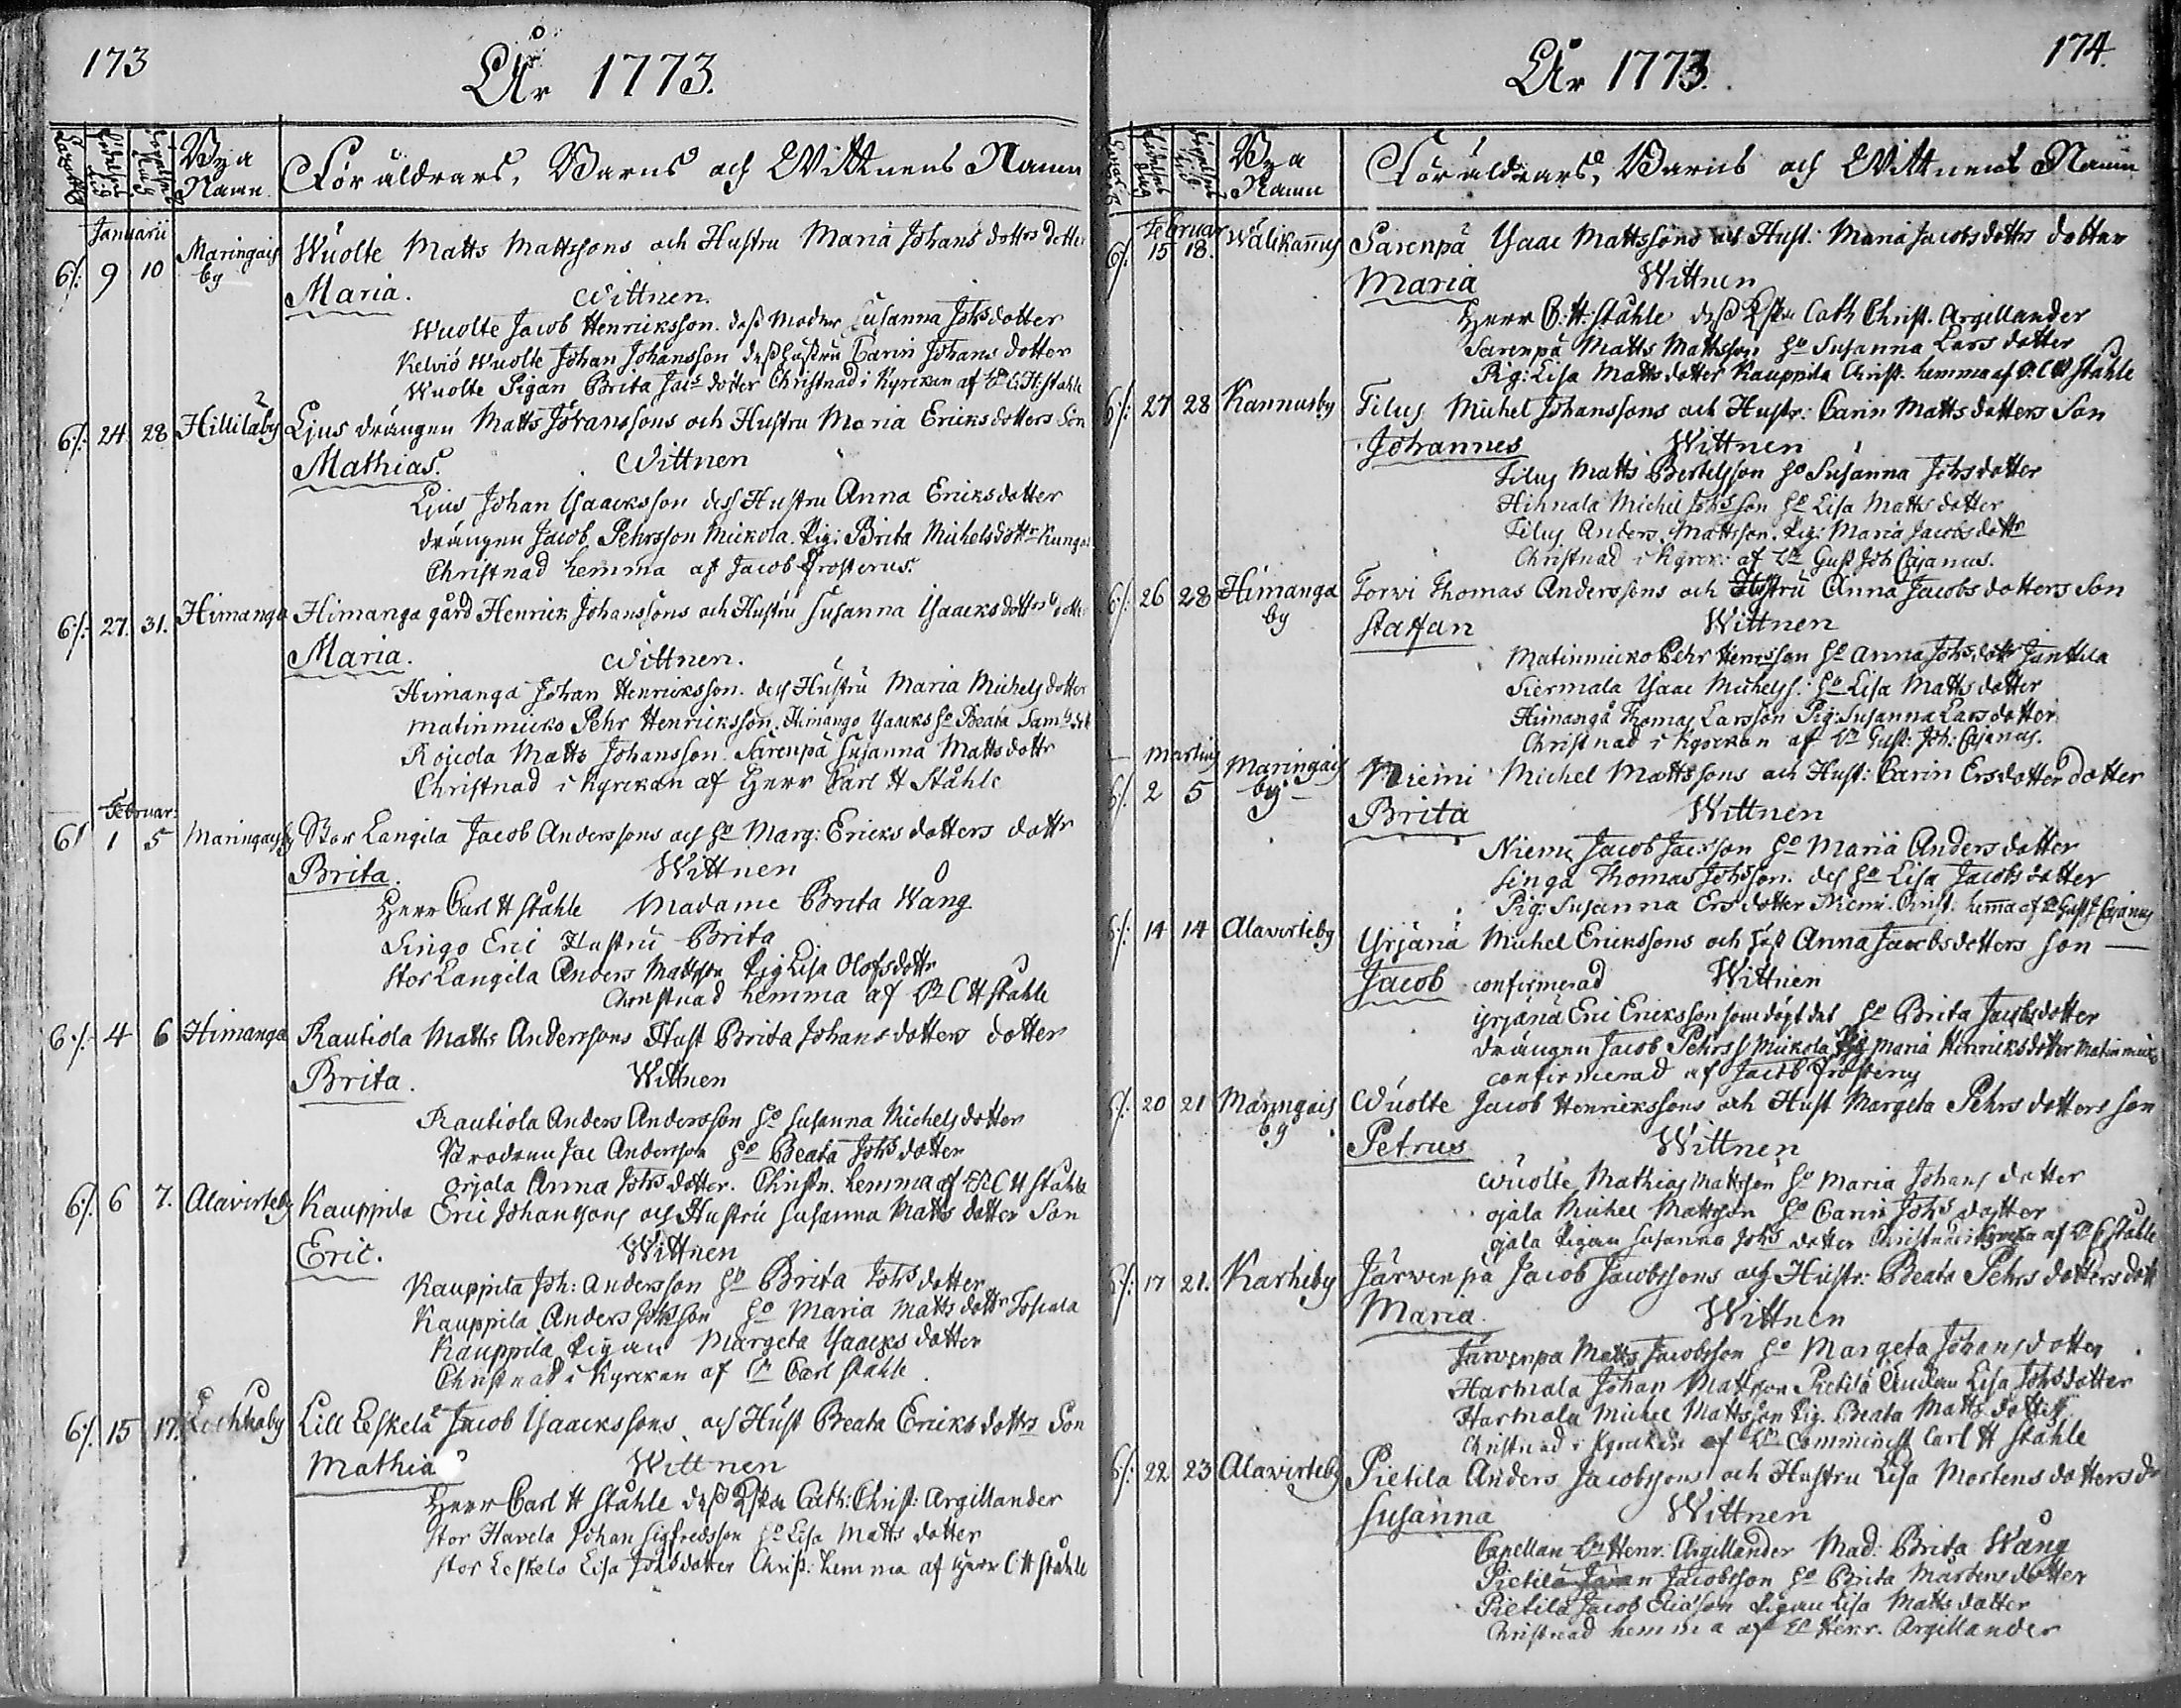 173
År 1773.
Bya Namn
Föräldrars, Barns och Wittnens Namn
Januarii
6/: 9 10 Maringais by Wuolte Matts Mattssons och Hustru Maria Johans dotters dotter
Maria. Wittnen.
Wuolte Jacob Henricksson. dess Moder Susanna Johsdotter
Kelviö Wuolte Johan Johansson dess hustru Carin Johans dotter
Wuolte Pigan Brita Jacs dotter Christnad i Kyrckan af Hr C:H: Ståhle
6/: 24 28 Hilliläby Ljus drängen Matts Johanssons och Hustru Maria Ericksdotters Son
Mathias. Wittnen
Ljus Johan Ysaacksson dess Hustru Anna Ericksdotter
drängen Jacob Pehrsson Mickola. Pig: Brita Michelsdottr
Christnad hemma af Jacob Frosterus.
6/: 27. 31. Himanga Himanga gård Henrick Johanssons och Hustru Susanna Ysaacksdotters dotter
Maria. Wittnen.
Himanga Johan Henricksson. dess Hustru Maria Michelsdotter
Matinmicko Pehr Henricksson. Himango Ysaacks Ho Beata
Roicola Matts Johansson. Särenpä Susanna Matts dottr
Christnad i Kyrckan af Herr Carl H Ståhle
Februar:
6/ 1 5 Maringaisby Stor Langila Jacob Anderssons och Ho Marg: Ericks dotters dottr
Brita. Wittnen
Herr Carl H Ståhle Madame Brita Wång
Singo Eric Hustru Brita
Stor Langila Anders Mattsson Pig Lisa Olofsdottr
Christnad hemma af Hr C H Ståhle
6:/: 4 6 Himanga Rautiola Matts Anderssons Hust Brita Johansdotters dotter
Brita. Wittnen
Rautiola Anders Andersson Ho Susanna Michelsdotter
Brodren Jac Andersson Ho Beata Johs dotter
Orjala Anna Johs dotter. Christn. hemma af Hr C H Ståhle
6:/. 6 7. Alavirteby Kauppila Eric Johanssons och Hustru Susanna Matts dotters Son
Eric. Wittnen
Kauppila Joh: Andersson Ho Brita Johs dotter
Kauppila Anders Johsson Ho Maria Matts dottr
Kauppila Pigan Margeta Ysaacks dotter
Christnad i Kyrckan af Hr Carl Ståhle.
6:/. 15 17. Lochtaby Lill Leskelä Jacob Ysaackssons och Hust Beata Ericksdottrs Son
Mathias Wittnen
Herr Carl H Ståhle dess Cath: Christ: Argillander
Stor Havela Johan Sigfredsson Ho Lisa Matts dotter
Stor Leskelä Lisa Johsdotter Christ: hemma af Herr C H Ståhle
174.
År 1773.
Bya Namn
Föräldrars, Barns och Wittnens Namn
Februar
6/: 15 18. Wälikannus Särenpä Ysaac Mattssons och Hust. Maria Jacobsdotters dotter
Maria Wittnen
Herr C: H: Ståhle dess Cath Christ. Argillander
Särenpä Matts Mattsson Ho Susanna Lars dotter
Pig: Lisa Matts dotter Kauppila Christ. hemma af Hr C H Ståhle
6/: 27 28 Kannusby Tilus Michel Johanssons och Hustr: Carin Matts dotters Son
Johannes Wittnen
Tilus Matts Bertelsson Ho Susanna Johsdotter
Hihnala Michel Johsson Ho Lisa Matts dotter
Tilus Anders Mattsson. Pig: Maria Jacobsdottr
Christnad i Kyrck: af Hr Gust Joh Cajanus.
6/: 26 28 Himanga by Torvi Thomas Anderssons och Hustru Anna Jacobs dotters Son
Staffan Wittnen
Matinmicko Pehr Henrsson Ho Anna Johsdottr Janttila
Siermala Ysaac Michelss. Ho Lisa Matts dotter
Himanga Thomas Larsson Pig: Susanna Lars dotter
Christnad i Kyrckan af Hr Gust: Joh: Cajanus.
Martius
6/: 2 5 Maringais by Niemi Michel Mattssons och Hust: Carin Ersdotters dotter
Brita Wittnen
Niemi Jacob Jacsson Ho Maria Anders dotter
Singa Thomas Johsson. dess Ho Lisa Jacobsdotter
Pig: Susanna Ersdotter Niemi. Christ. hemma af Hr Gust J Cajanus
6/: 14 14 Alavirteby Yrjänä Michel Erickssons och Hust Anna Jacobsdotters Son
Jacob confirmerad Wittnen
Yrjänä Eric Ericksson som döpt det Ho Brita Jacobsdotter
Drängen Jacob Pehrss Mickola Pig Maria Henricksdotter Matinmicko
confirmerad af Jacob Frosterus
6/: 20 21 Maringais by Wuolte Jacob Henrickssons och Hust Margeta Pehrs dotters Son
Petrus Wittnen
Wuolte Mathias Mattsson Ho Maria Johans dotter
Ojala Michel Mattsson Ho Carin Johs dotter
Ojala Pigan Susanna Johs dotter Christnad i Kyrcka af Hr C Ståhle
6/: 17 21. Karhiby Järvenpä Jacob Jacobssons och Hustr: Beata Pehrs dotters dott
Maria Wittnen
Järvenpä Matts Jacobsson Ho Margeta Johans dotter
Harmala Johan Mattsson Pietilä Enckan Lisa Johsdotter
Harmala Michel Mattsson Pig. Beata Matts dotter
Christnad i Kyrckan af Hr Comminist Carl H Ståhle
6/: 22 23 Alavirteby Pietilä Anders Jacobssons och Hustru Lisa Mortens dotters dr
Susanna Wittnen
Capellan Hr Henr. Argillander Mad: Brita Wång
Pietilä Johan Jacobsson Ho Brita Mårtens dotter
Pietilä Jacob Ericsson Pigan Lisa Matts dotter
Christnad hemma af Hr Henr. Argillander